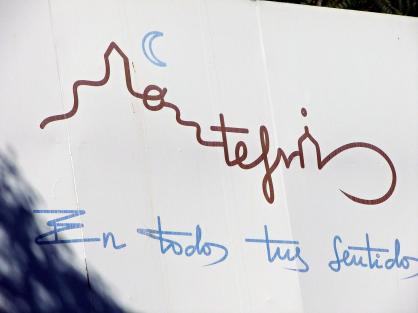 Montefrío
En todos tus sentidos